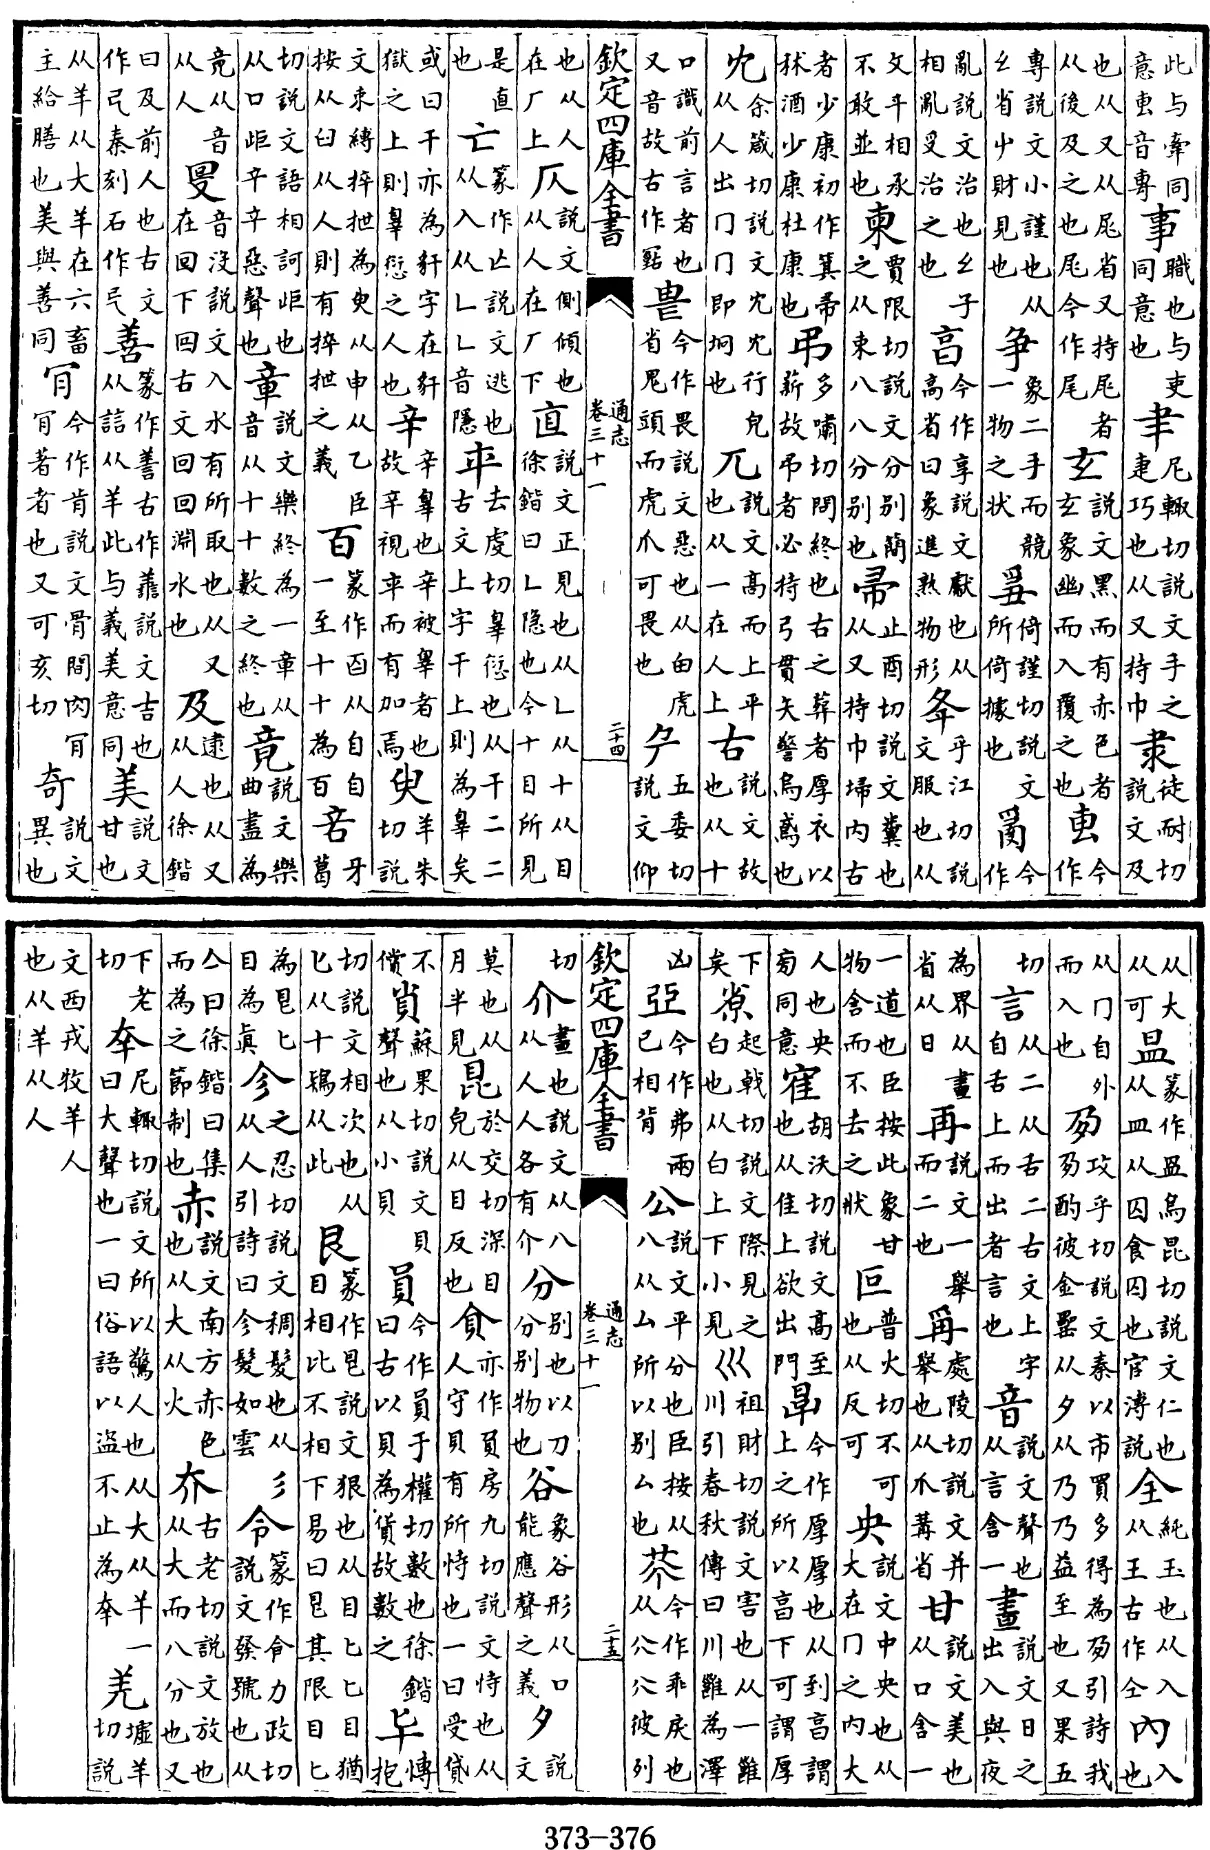 此与牽同意叀音專事職也与吏同意也𦘒尼輒切說文手之疌巧也从又持巾隶徒耐切說文及
也从又从尾省又持尾者从後及之也尾今作尾玄說文黑而有赤色者玄象幽而入覆之也叀今作
專說文小謹也从幺省屮財見也爭象二手而競一物之狀𤔌倚謹切說文所倚據也𤔔今作
亂說文治也幺子相亂𠬪治之也亯今作享說文獻也从高省曰象進熟物形夅乎江切說文服也从
夊相承不敢並也柬賈限切說文分別簡之从束八八分別也帚止酉切說文糞也从又持巾埽內古
者少康初作箕帚秫酒少康杜康也弔多嘯切問終也古之葬者厚衣以薪故弔者必持弓貫矢警烏鳶也
冘余箴切說文冘冘行皃从人出冂冂即坰也兀說文高而上平也从一在人上古說文故也从十
口識前言者也又音故古作今作畏說文惡也从甶虎省鬼頭而虎爪可畏也五委切說文仰
欽定四庫全書
通志
卷三十一
二十四
也从人在厂上仄說文側傾也从人在厂下直說文正見也从乚从十从目徐鍇曰乚隱也今十目所見
是直也亡篆作亾說文逃也从入从乚乚音隱𢆉去虔切辠愆也从干二二古文上字干上則為辠矣
或曰干亦為豻字在豻獄之上則辠愆之人也辛辛辠也辛被辠者也故辛視𢆉而有加焉臾羊朱切說
文束縛捽抴為臾从申从乙臣按从臼从人則有捽抴之義百篆作𦣻从自自一至十十為百䇂牙葛
切說文語相訶岠也从口岠䇂䇂惡聲也章說文樂終為一章从音从十十數之終也竟說文樂曲盡為
竟从音从人𠬸音沒說文入水有所取也从又在回下回古文回回淵水也及逮也从又从人徐鍇
曰及前人也古文作弓秦刻石作乁善篆作譱古作說文吉也从誩从羊此与義美意同美說文甘也
从羊从大羊在六畜主給膳也美與善同肎今作肯說文骨間肉肎肎著者也又可亥切奇說文異也
从大从可昷篆作𥁕烏昆切說文仁也从皿从囚食囚也官溥說全純玉也从入从王古作仝內入也
从冂自外而入也夃攻乎切說文秦以市買多得為夃引詩我夃酌彼金罍从夕从乃乃益至也又果五
切言从二从舌二古文上字自舌上而出者言也音說文聲也从言含一晝說文日之出入與夜
為界从畫省从日再說文一舉而二也爯處陵切說文并舉也从爪冓省甘說文美也从口含一
一道也臣按此象甘物含而不去之狀叵普火切不可也从反可央說文中央也从大在冂之內大
人也央㫄同意隺胡沃切說文高至也从隹上欲出門㫗今作厚厚也从到亯謂上之所以亯下可謂厚
下矣𡭴起戟切說文際見之白也从白上下小見巛祖財切說文害也从一雝川引春秋傳曰川雝為澤
凶亞今作弗兩已相背公說文平分也臣按从八从厶所以別厶也今作乖戾也从仌仌彼列
欽定四庫全書
通志
卷三十一
二十五
切介畫也說文从八从人人各有介分別也以刀分別物也谷象谷形从口能應聲之義夕說文
莫也从月半見㫐於交切深目皃从目反也負亦作負房九切說文恃也从人守貝有所恃也一曰受貸
不償𧴪蘇果切說文貝聲也从小貝員今作員于權切數也徐鍇曰古以貝為貨故數之𠦒博抱
切說文相次也从匕从十鴇从此艮篆作皀說文狠也从目匕匕目猶目相比不相下易曰皀其限目匕
為皀匕目為眞㐱之忍切說文稠髮也从彡从人引詩曰㐱髮如雲令篆作令力政切說文發號也从
亼曰徐鍇曰集而為之節制也赤說文南方赤色也从大从火夰古老切說文放也从大而八分也又
下老切㚔尼輒切說文所以驚人也从大从羊一曰大聲也一曰俗語以盜不止為㚔羌墟羊切說
文西戎牧羊人也从羊从人
373-376